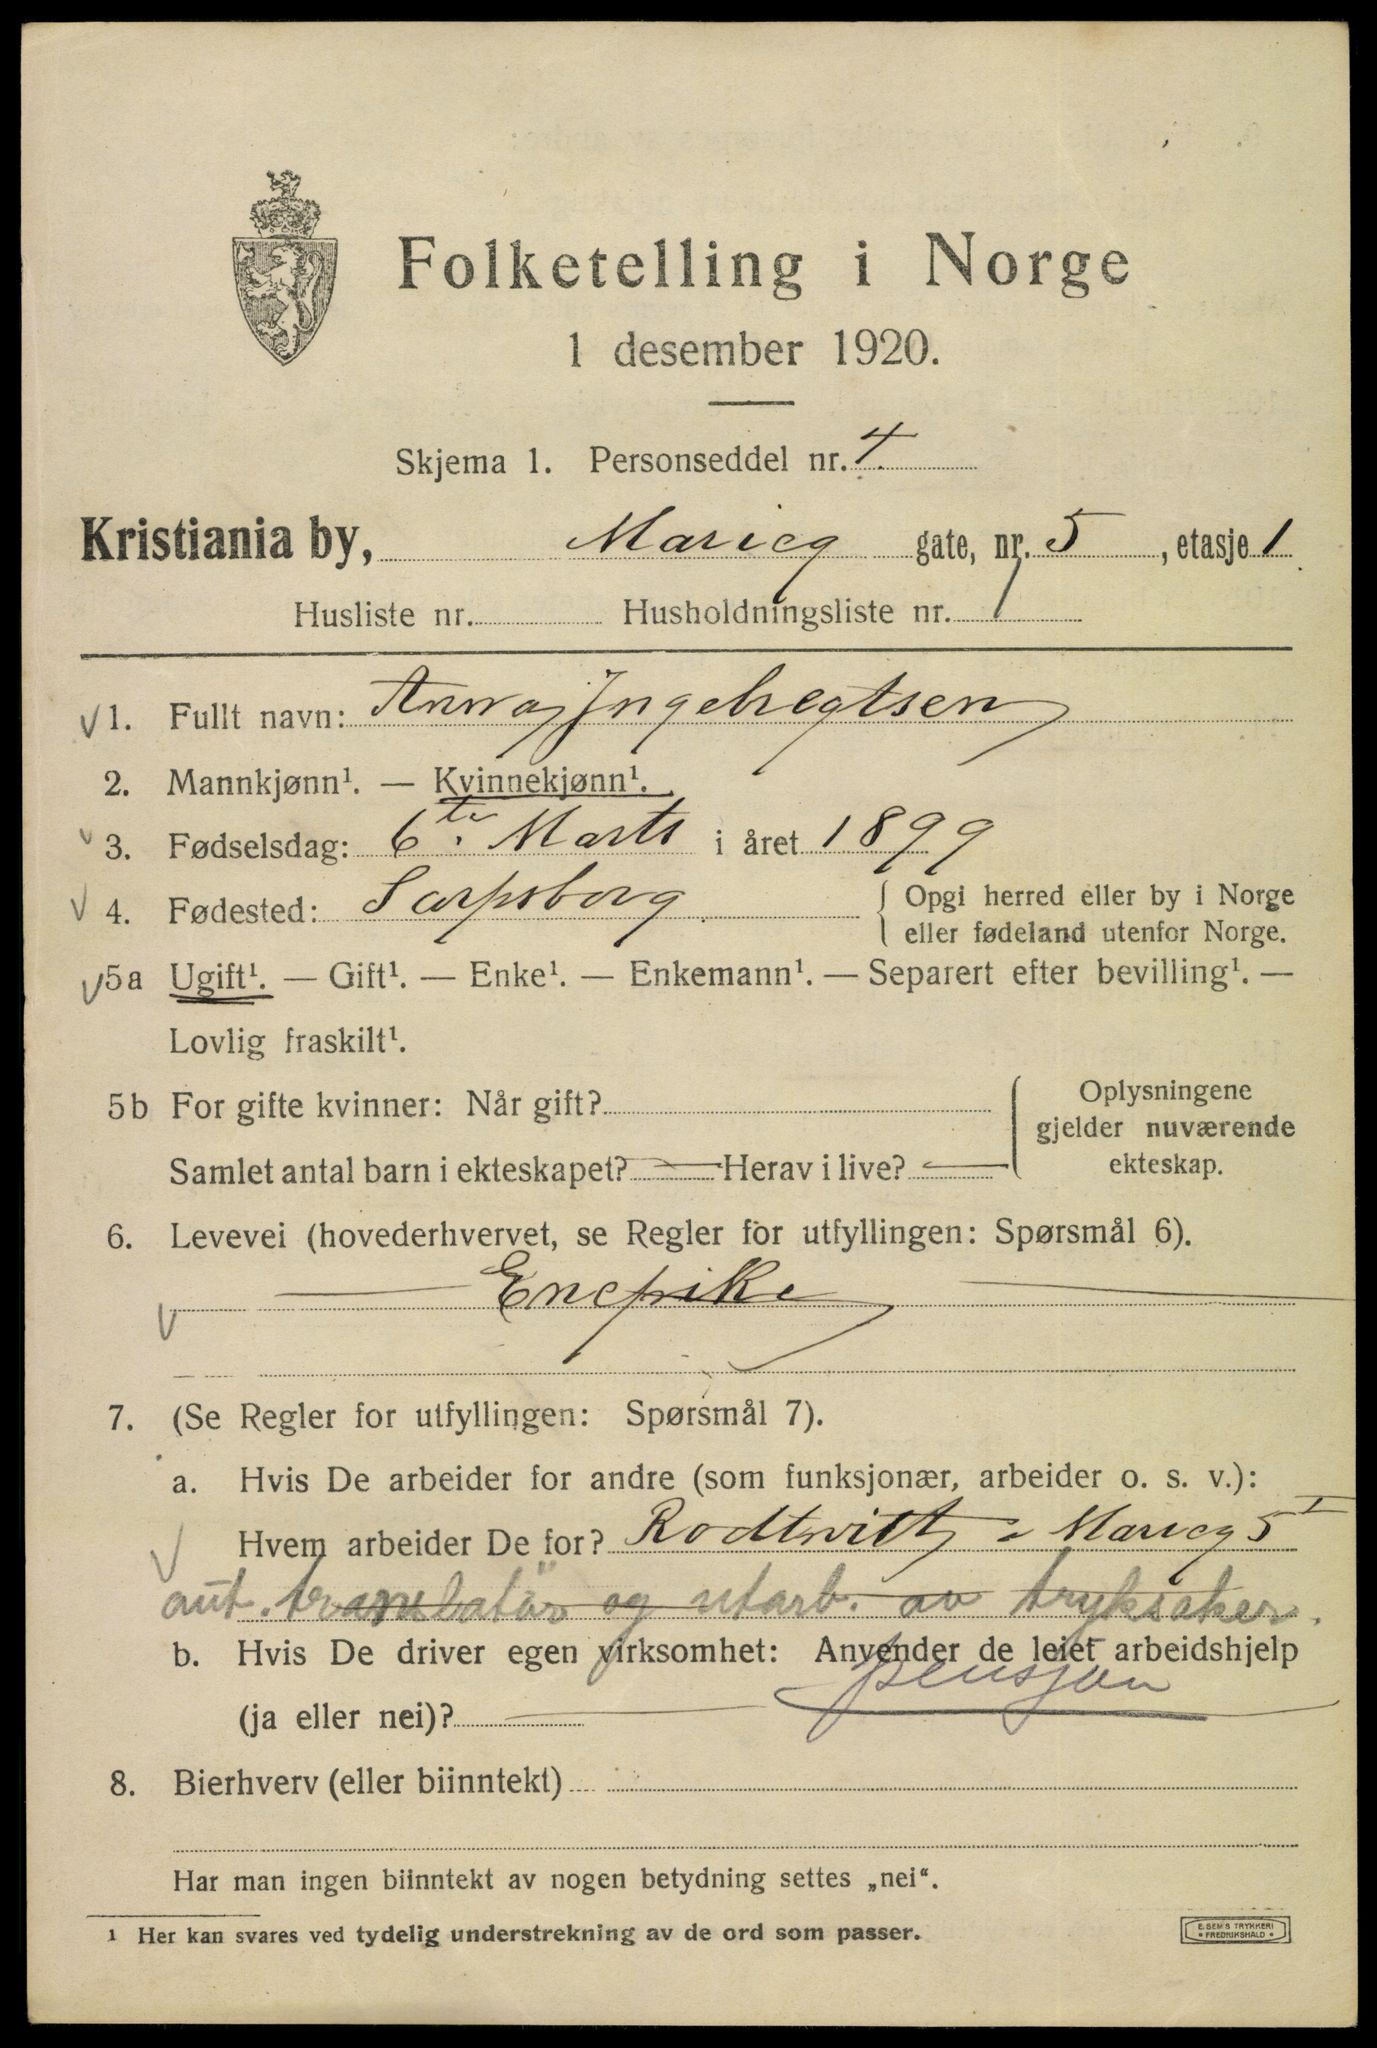 Folketelling i Norge
1 desember 1920.
Skjema 1. Personseddel nr. 4
Kristiania by, Marieg gate, nr. 5, etasje 1
Husliste nr. Husholdningsliste nr. 1
1. Fullt navn: Anna Ingebregtsen
2. Mannkjønn¹. — Kvinnekjønn¹.
3. Fødselsdag: 6te Marts i året 1899
4. Fødested: Sarpsborg { Opgi herred eller by i Norge
eller fødeland utenfor Norge.
5a Ugift¹. — Gift¹. — Enke¹. — Enkemann¹. — Separert efter bevilling¹. —
Lovlig fraskilt¹.
5b For gifte kvinner: Når gift?
Samlet antal barn i ekteskapet? — Herav i live? —
Oplysningene
gjelder nuværende
ekteskap.
6. Levevei (hovederhvervet, se Regler for utfyllingen: Spørsmål 6).
— Enepike —
7. (Se Regler for utfyllingen: Spørsmål 7).
a. Hvis De arbeider for andre (som funksjonær, arbeider o. s. v.):
Hvem arbeider De for? Rodtwitt, Marieg 5 I
aut. translatør og utarb. av tryksaker.
b. Hvis De driver egen virksomhet: Anvender de leiet arbeidshjelp
pensjon
(ja eller nei)? —
8. Bierhverv (eller biinntekt)
Har man ingen biinntekt av nogen betydning settes „nei“.
¹ Her kan svares ved tydelig understrekning av de ord som passer.
E. SEM'S TRYKKERI
• FREDRIKSHALD •